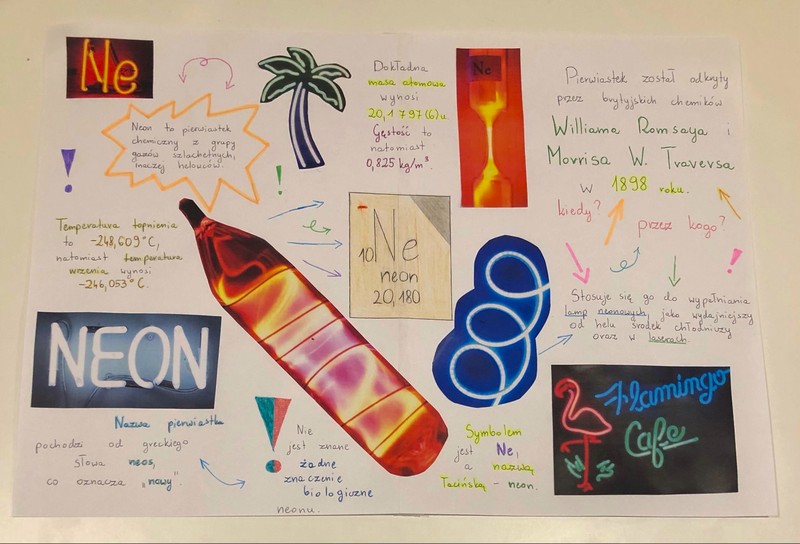 Ne
Neon to pierwiastek
chemiczny z grupy
gazów szlachetnych,
inaczej helowców.
Temperatura topnienia
to -248,609°C,
natomiast temperatura
wrzenia wynosi
-246,053°C.
NEON
Nazwa pierwiastka
pochodzi od greckiego
słowa neos,
co oznacza „nowy".
Dokładna
masa atomowa
wynosi
20,1797(6)u.
Gęstość to
natomiast
0,825 kg/m³.
Ne
10 Ne
neon
20,180
Nie
jest znane
żadne
znaczenie
biologiczne
neonu.
Symbolem
jest Ne,
a nazwą
łacińską - neon.
Pierwiastek został odkryty
przez brytyjskich chemików
Williama Ramsaya i
Morrisa W. Traversa
w 1898 roku.
kiedy?
przez kogo?
Stosuje się go do wypełniania
lamp neonowych, jako wydajniejszy
od helu środek chłodniczy
oraz w laserach.
Flamingo
Cafe